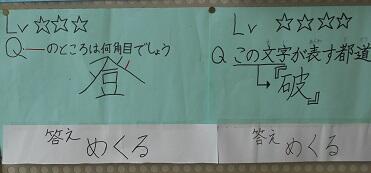 Lv ☆☆☆
Q.―のところは何角目でしょう
登
答え めくる
Lv ☆☆☆☆
Q この文字が表す都道
→『破』
答え めくる